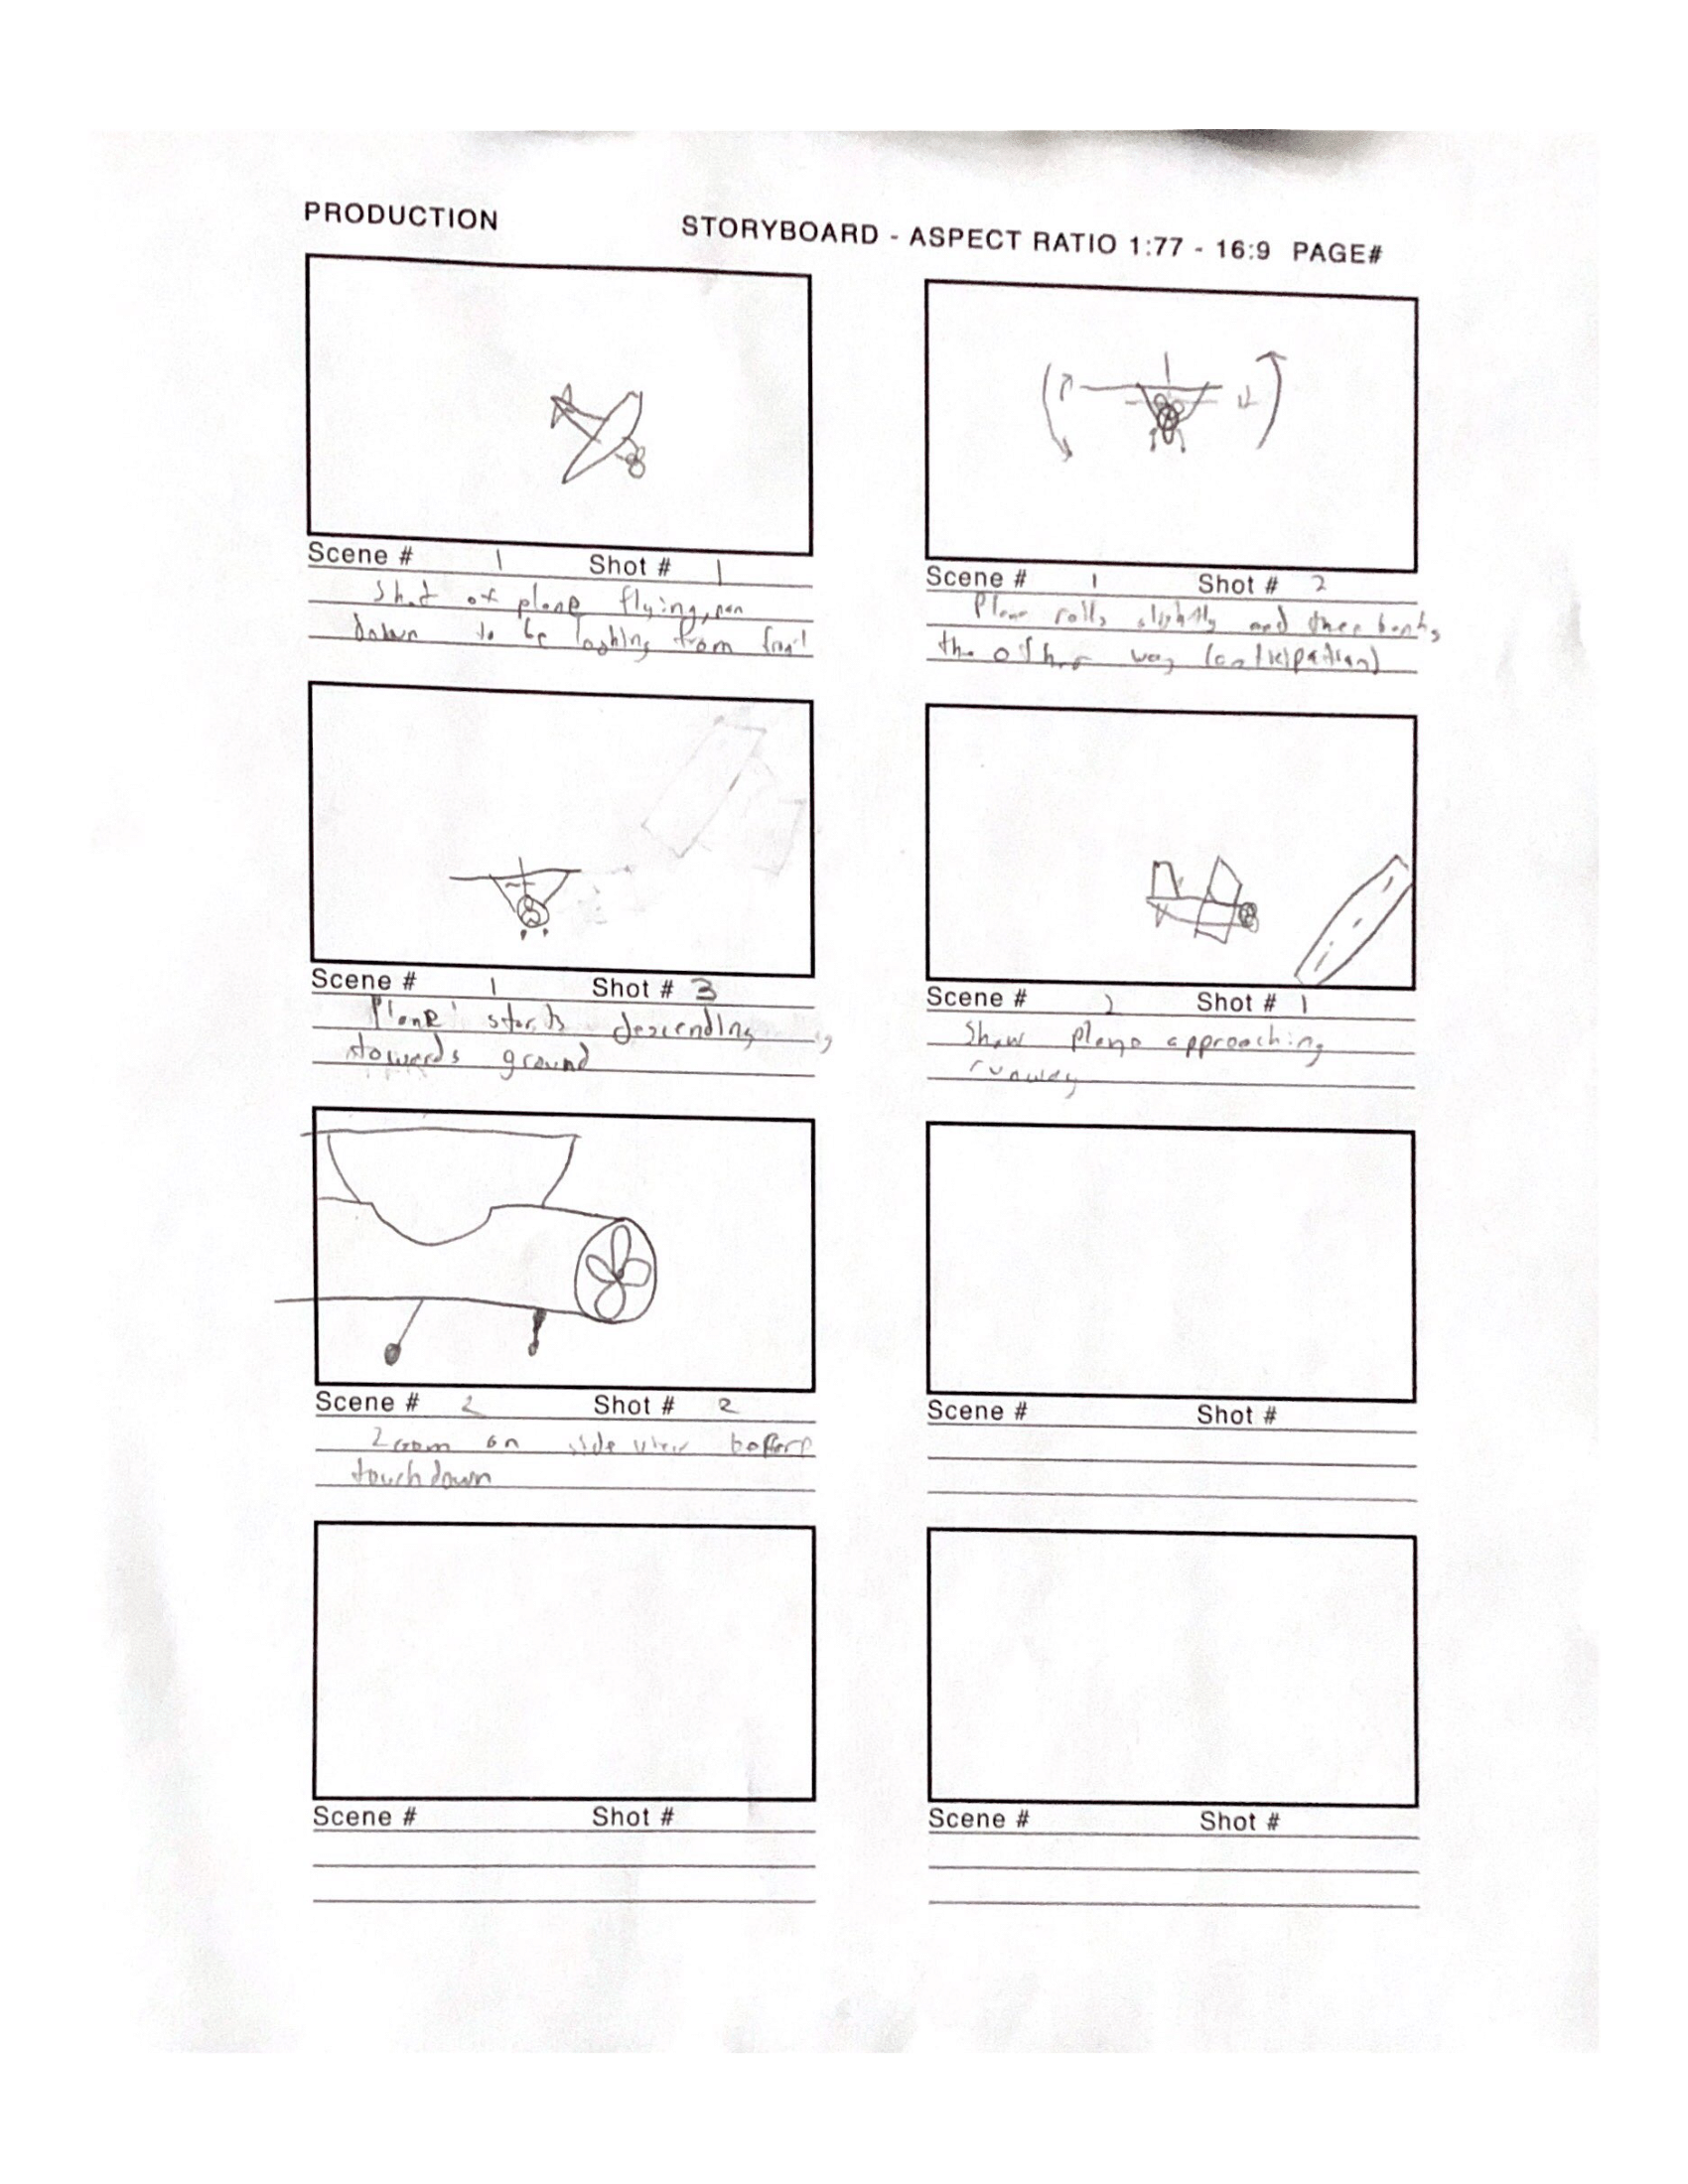 PRODUCTION
STORYBOARD - ASPECT RATIO 1:77 - 16:9 PAGE#
Scene # 1 Shot # 1
Shot of plane flying, pan
down to be looking from front
Scene # 1 Shot # 2
Plane rolls slightly and then banks
the other way (anticipation)
Scene # 1 Shot # 3
Plane starts descending
towards ground
Scene # 2 Shot # 1
Show plane approaching
runway
Scene # 2 Shot # 2
Zoom on side view before
touchdown
Scene # Shot #
Scene # Shot #
Scene # Shot #